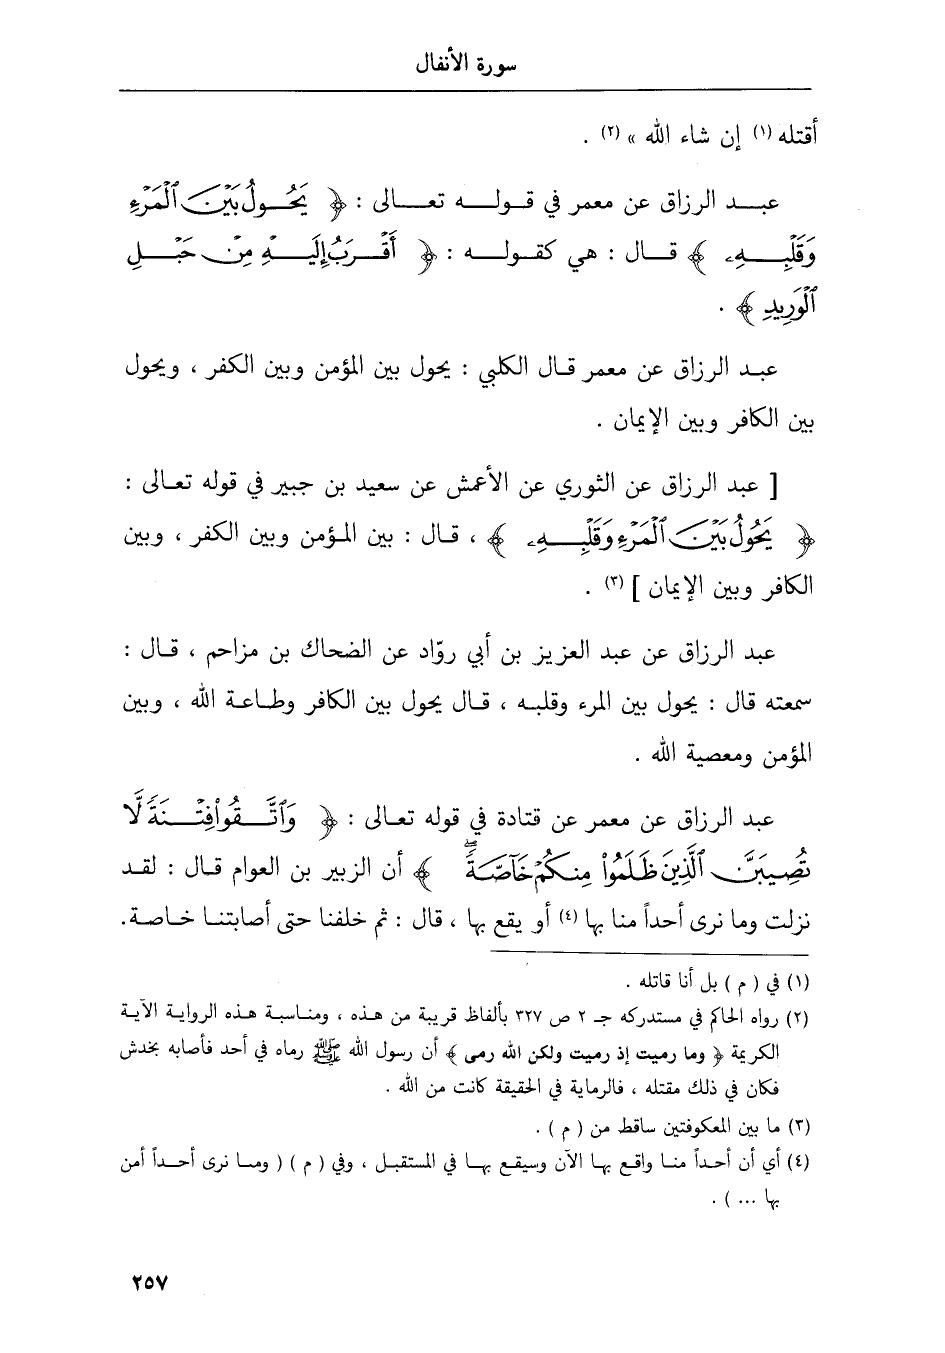 سورة الأنفال
أقتله (١) إن شاء الله » (٢) .
عبـد الرزاق عن معمر في قولـه تعـالى : ﴿ يَحُولُ بَيْنَ ٱلْمَرْءِ
وَقَلْبِهِۦ ﴾ قـال : هي كقولـه : ﴿ أَقْرَبُ إِلَيْهِ مِنْ حَبْلِ
ٱلْوَرِيدِ ﴾ .
عبـد الرزاق عن معمر قـال الكلبي : يحول بين المؤمن وبين الكفر ، ويحول
بين الكافر وبين الإيمان .
[ عبد الرزاق عن الثوري عن الأعمش عن سعيد بن جبير في قوله تعـالى :
﴿ يَحُولُ بَيْنَ ٱلْمَرْءِ وَقَلْبِهِۦ ﴾ ، قـال : بين المـؤمن وبين الكفر ، وبين
الكافر وبين الإيمان ] (٣) .
عبد الرزاق عن عبد العزيز بن أبي روّاد عن الضحاك بن مزاحم ، قـال :
سمعته قال : يحول بين المرء وقلبـه ، قـال يحول بين الكافر وطـاعـة الله ، وبين
المؤمن ومعصية الله .
عبد الرزاق عن معمر عن قتادة في قوله تعـالى : ﴿ وَٱتَّقُواْ فِتْنَةً لَّا
تُصِيبَنَّ ٱلَّذِينَ ظَلَمُواْ مِنكُمْ خَآصَّةًۖ ﴾ أن الزبير بن العوام قـال : لقـد
نزلت وما نرى أحداً منا بها (٤) أو يقع بها ، قال : ثم خلفنا حتى أصابتنـا خـاصـة.
(١) في ( م ) بل أنا قاتله .
(٢) رواه الحاكم في مستدركه جـ ٢ ص ٣٢٧ بألفاظ قريبة من هـذه ، ومنـاسبـة هـذه الروايـة الآيـة
الكريمة ﴿ وما رميت إذ رميت ولكن الله رمى ﴾ أن رسول الله ﷺ رماه في أحد فأصابه بخدش
فكان في ذلك مقتله ، فالرماية في الحقيقة كانت من الله .
(٣) ما بين المعكوفتين ساقط من ( م ) .
(٤) أي أن أحـداً منـا واقع بهـا الآن وسيقـع بهـا في المستقبـل ، وفي ( م ) ( ومـا نرى أحـداً أمن
بها ... ) .
٢٥٧